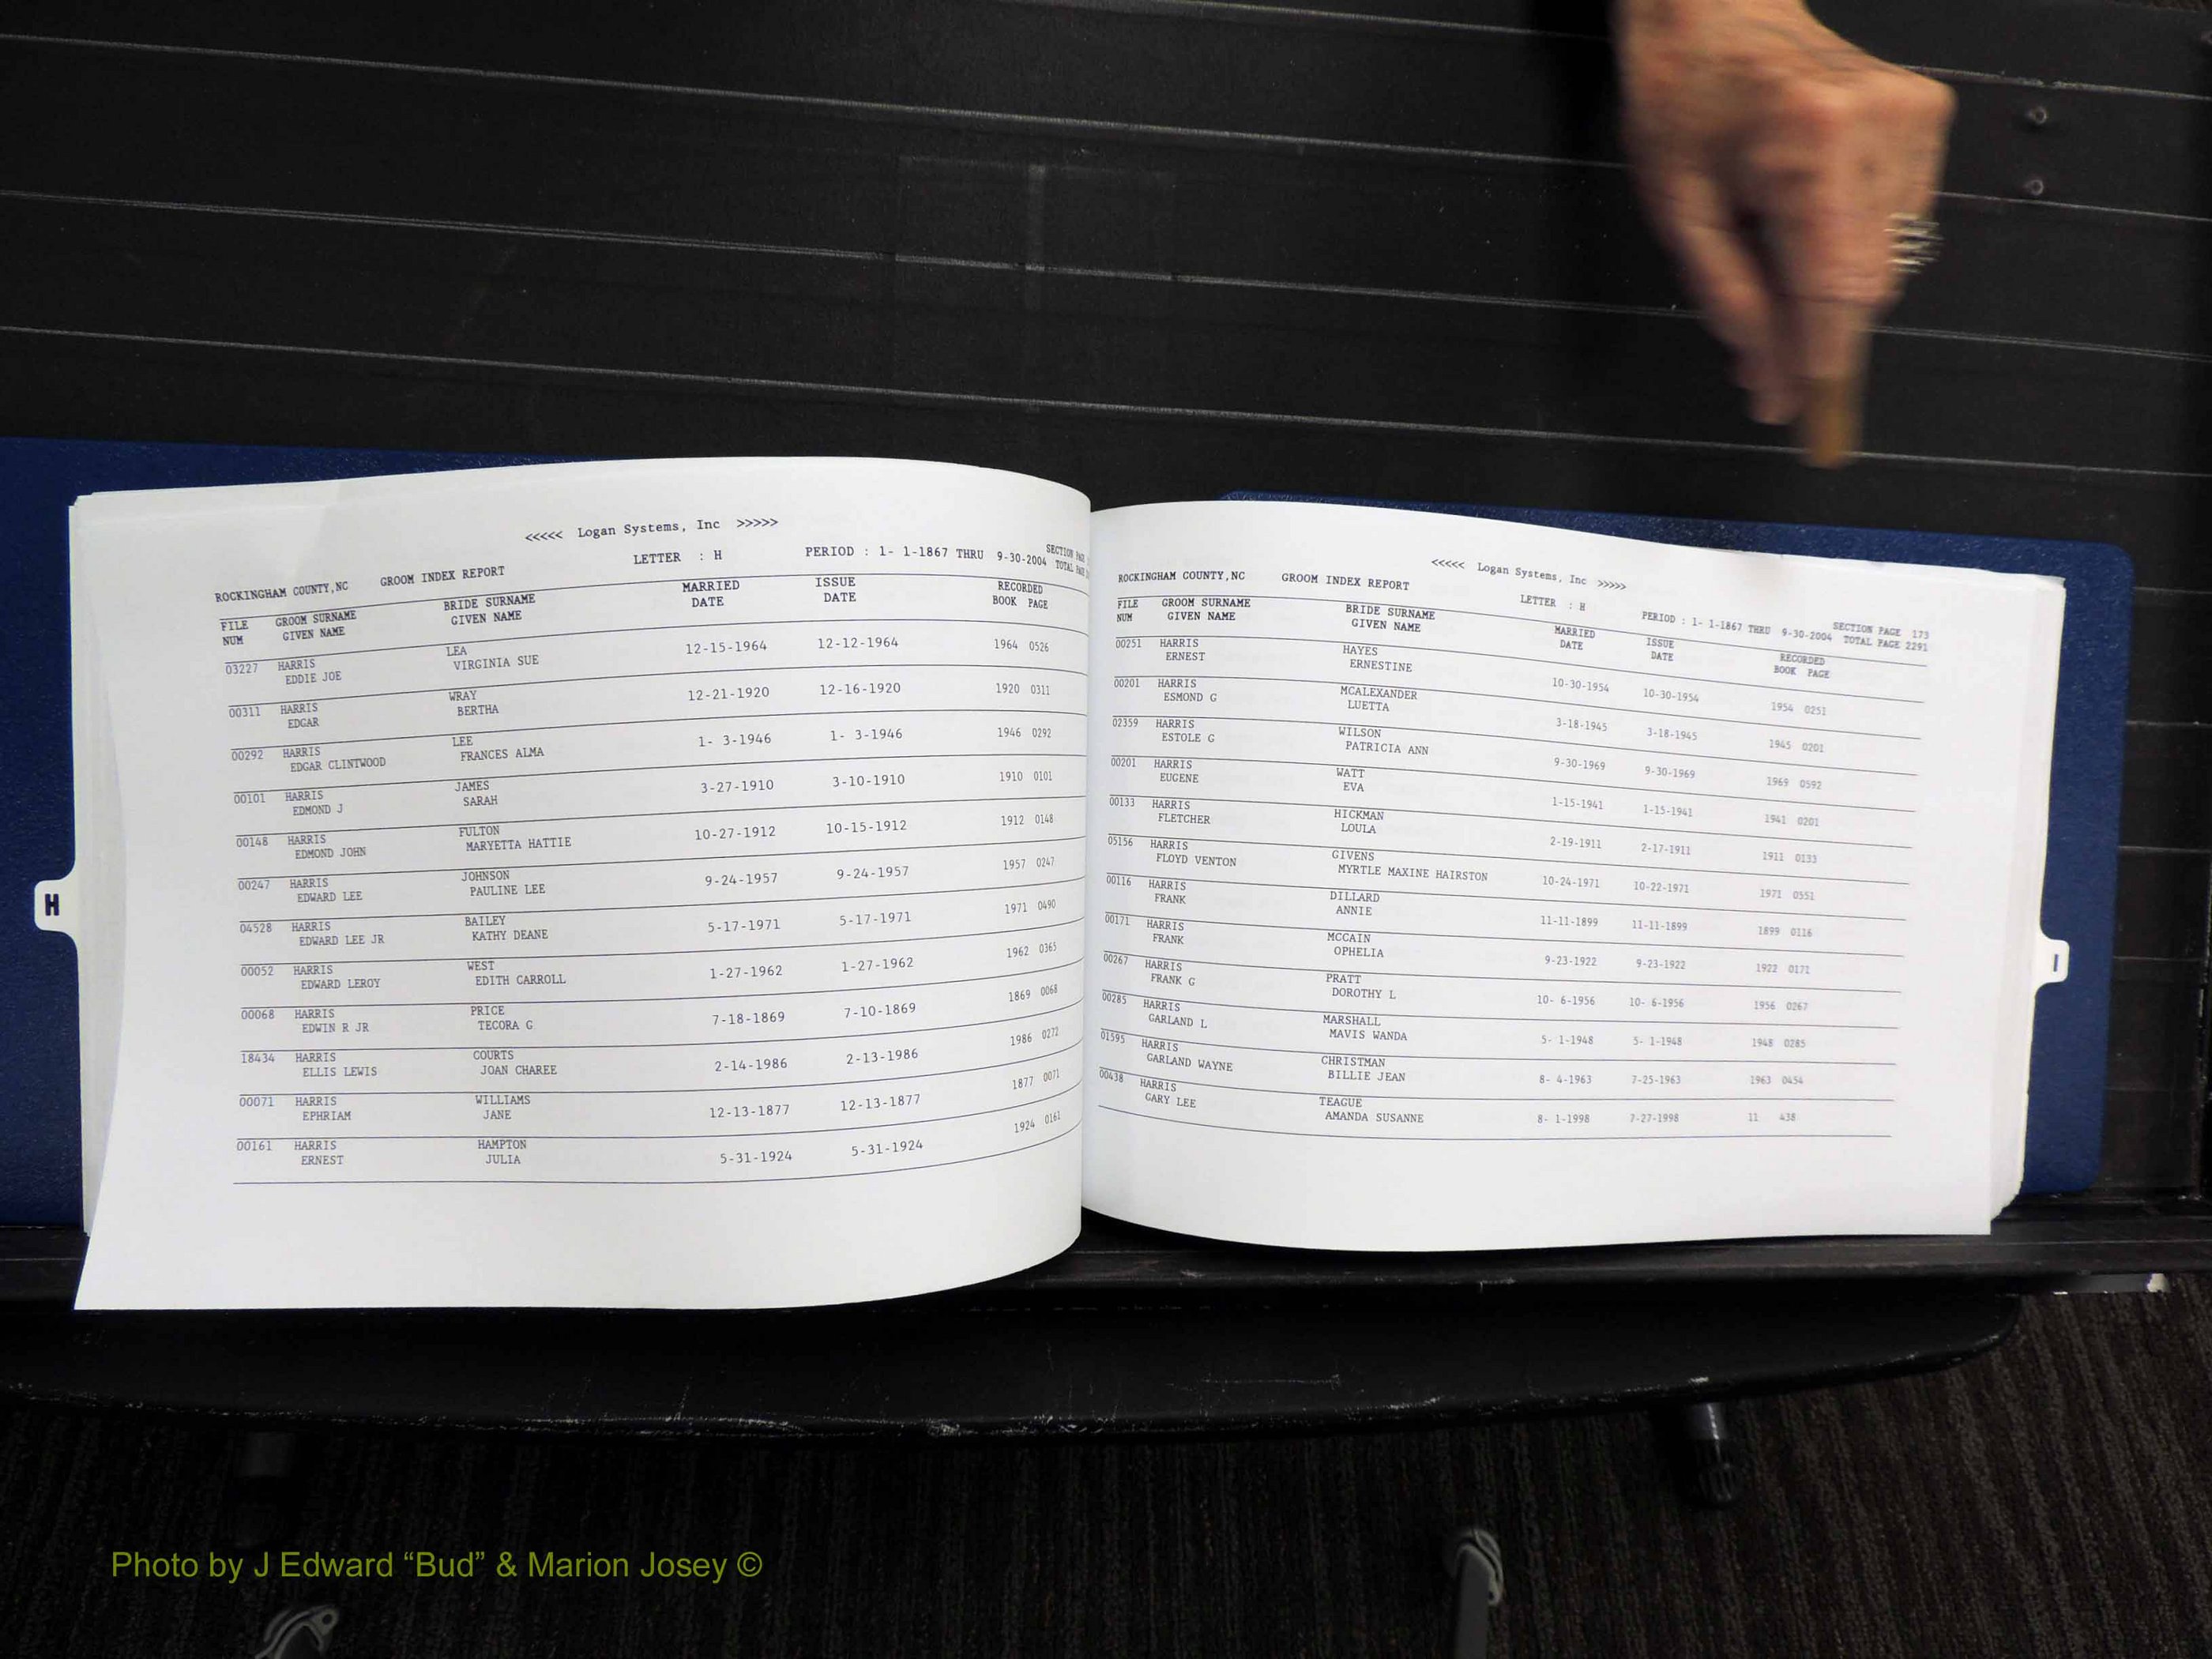 <<<<< Logan Systems, Inc >>>>>
ROCKINGHAM COUNTY,NC GROOM INDEX REPORT LETTER : H PERIOD : 1- 1-1867 THRU 9-30-2004 SECTION PAGE
TOTAL PAGE
FILE GROOM SURNAME BRIDE SURNAME MARRIED ISSUE RECORDED
NUM GIVEN NAME GIVEN NAME DATE DATE BOOK PAGE
03227 HARRIS LEA 12-15-1964 12-12-1964 1964 0526
EDDIE JOE VIRGINIA SUE
00311 HARRIS WRAY 12-21-1920 12-16-1920 1920 0311
EDGAR BERTHA
00292 HARRIS LEE 1- 3-1946 1- 3-1946 1946 0292
EDGAR CLINTWOOD FRANCES ALMA
00101 HARRIS JAMES 3-27-1910 3-10-1910 1910 0101
EDMOND J SARAH
00148 HARRIS FULTON 10-27-1912 10-15-1912 1912 0148
EDMOND JOHN MARYETTA HATTIE
00247 HARRIS JOHNSON 9-24-1957 9-24-1957 1957 0247
EDWARD LEE PAULINE LEE
04528 HARRIS BAILEY 5-17-1971 5-17-1971 1971 0490
EDWARD LEE JR KATHY DEANE
00052 HARRIS WEST 1-27-1962 1-27-1962 1962 0365
EDWARD LEROY EDITH CARROLL
00068 HARRIS PRICE 7-18-1869 7-10-1869 1869 0068
EDWIN R JR TECORA G
18434 HARRIS COURTS 2-14-1986 2-13-1986 1986 0272
ELLIS LEWIS JOAN CHAREE
00071 HARRIS WILLIAMS 12-13-1877 12-13-1877 1877 0071
EPHRIAM JANE
00161 HARRIS HAMPTON 5-31-1924 5-31-1924 1924 0161
ERNEST JULIA
H
<<<<< Logan Systems, Inc >>>>>
ROCKINGHAM COUNTY,NC GROOM INDEX REPORT LETTER : H PERIOD : 1- 1-1867 THRU 9-30-2004 SECTION PAGE 173
TOTAL PAGE 2291
FILE GROOM SURNAME BRIDE SURNAME MARRIED ISSUE RECORDED
NUM GIVEN NAME GIVEN NAME DATE DATE BOOK PAGE
00251 HARRIS HAYES 10-30-1954 10-30-1954 1954 0251
ERNEST ERNESTINE
00201 HARRIS MCALEXANDER 3-18-1945 3-18-1945 1945 0201
ESMOND G LUETTA
02359 HARRIS WILSON 9-30-1969 9-30-1969 1969 0592
ESTOLE G PATRICIA ANN
00201 HARRIS WATT 1-15-1941 1-15-1941 1941 0201
EUGENE EVA
00133 HARRIS HICKMAN 2-19-1911 2-17-1911 1911 0133
FLETCHER LOULA
05156 HARRIS GIVENS 10-24-1971 10-22-1971 1971 0551
FLOYD VENTON MYRTLE MAXINE HAIRSTON
00116 HARRIS DILLARD 11-11-1899 11-11-1899 1899 0116
FRANK ANNIE
00171 HARRIS MCCAIN 9-23-1922 9-23-1922 1922 0171
FRANK OPHELIA
00267 HARRIS PRATT 10- 6-1956 10- 6-1956 1956 0267
FRANK G DOROTHY L
00285 HARRIS MARSHALL 5- 1-1948 5- 1-1948 1948 0285
GARLAND L MAVIS WANDA
01595 HARRIS CHRISTMAN 8- 4-1963 7-25-1963 1963 0454
GARLAND WAYNE BILLIE JEAN
00438 HARRIS TEAGUE 8- 1-1998 7-27-1998 11 438
GARY LEE AMANDA SUSANNE
I
Photo by J Edward “Bud” & Marion Josey ©